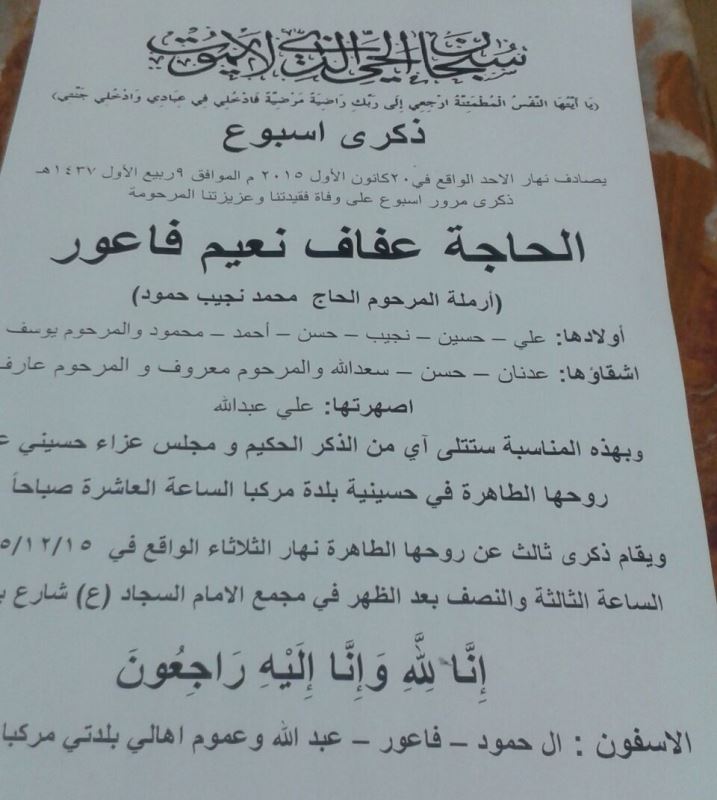 سُبْحَانَ الحَيِّ الَّذِي لَا يَمُوتُ
(يَا أَيَّتُهَا النَّفْسُ الْمُطْمَئِنَّةُ ارْجِعِي إِلَى رَبِّكِ رَاضِيَةً مَرْضِيَّةً فَادْخُلِي فِي عِبَادِي وَادْخُلِي جَنَّتِي)
ذكرى اسبوع
يصادف نهار الاحد الواقع في ٢٠ كانون الأول ٢٠١٥ م الموافق ٩ ربيع الأول ١٤٣٧هـ
ذكرى مرور اسبوع على وفاة فقيدتنا وعزيزتنا المرحومة
الحاجة عفاف نعيم فاعور
(أرملة المرحوم الحاج محمد نجيب حمود)
أولادها: علي – حسين – نجيب – حسن – أحمد – محمود والمرحوم يوسف
اشقاؤها: عدنان – حسن – سعدالله والمرحوم معروف و المرحوم عارف
اصهرتها: علي عبدالله
وبهذه المناسبة ستتلى آي من الذكر الحكيم و مجلس عزاء حسيني
روحها الطاهرة في حسينية بلدة مركبا الساعة العاشرة صباحاً
ويقام ذكرى ثالث عن روحها الطاهرة نهار الثلاثاء الواقع في ٥/١٢/١٥
الساعة الثالثة والنصف بعد الظهر في مجمع الامام السجاد (ع) شارع
إِنَّا لِلَّهِ وَإِنَّا إِلَيْهِ رَاجِعُونَ
الاسفون : ال حمود – فاعور – عبد الله وعموم اهالي بلدتي مركبا